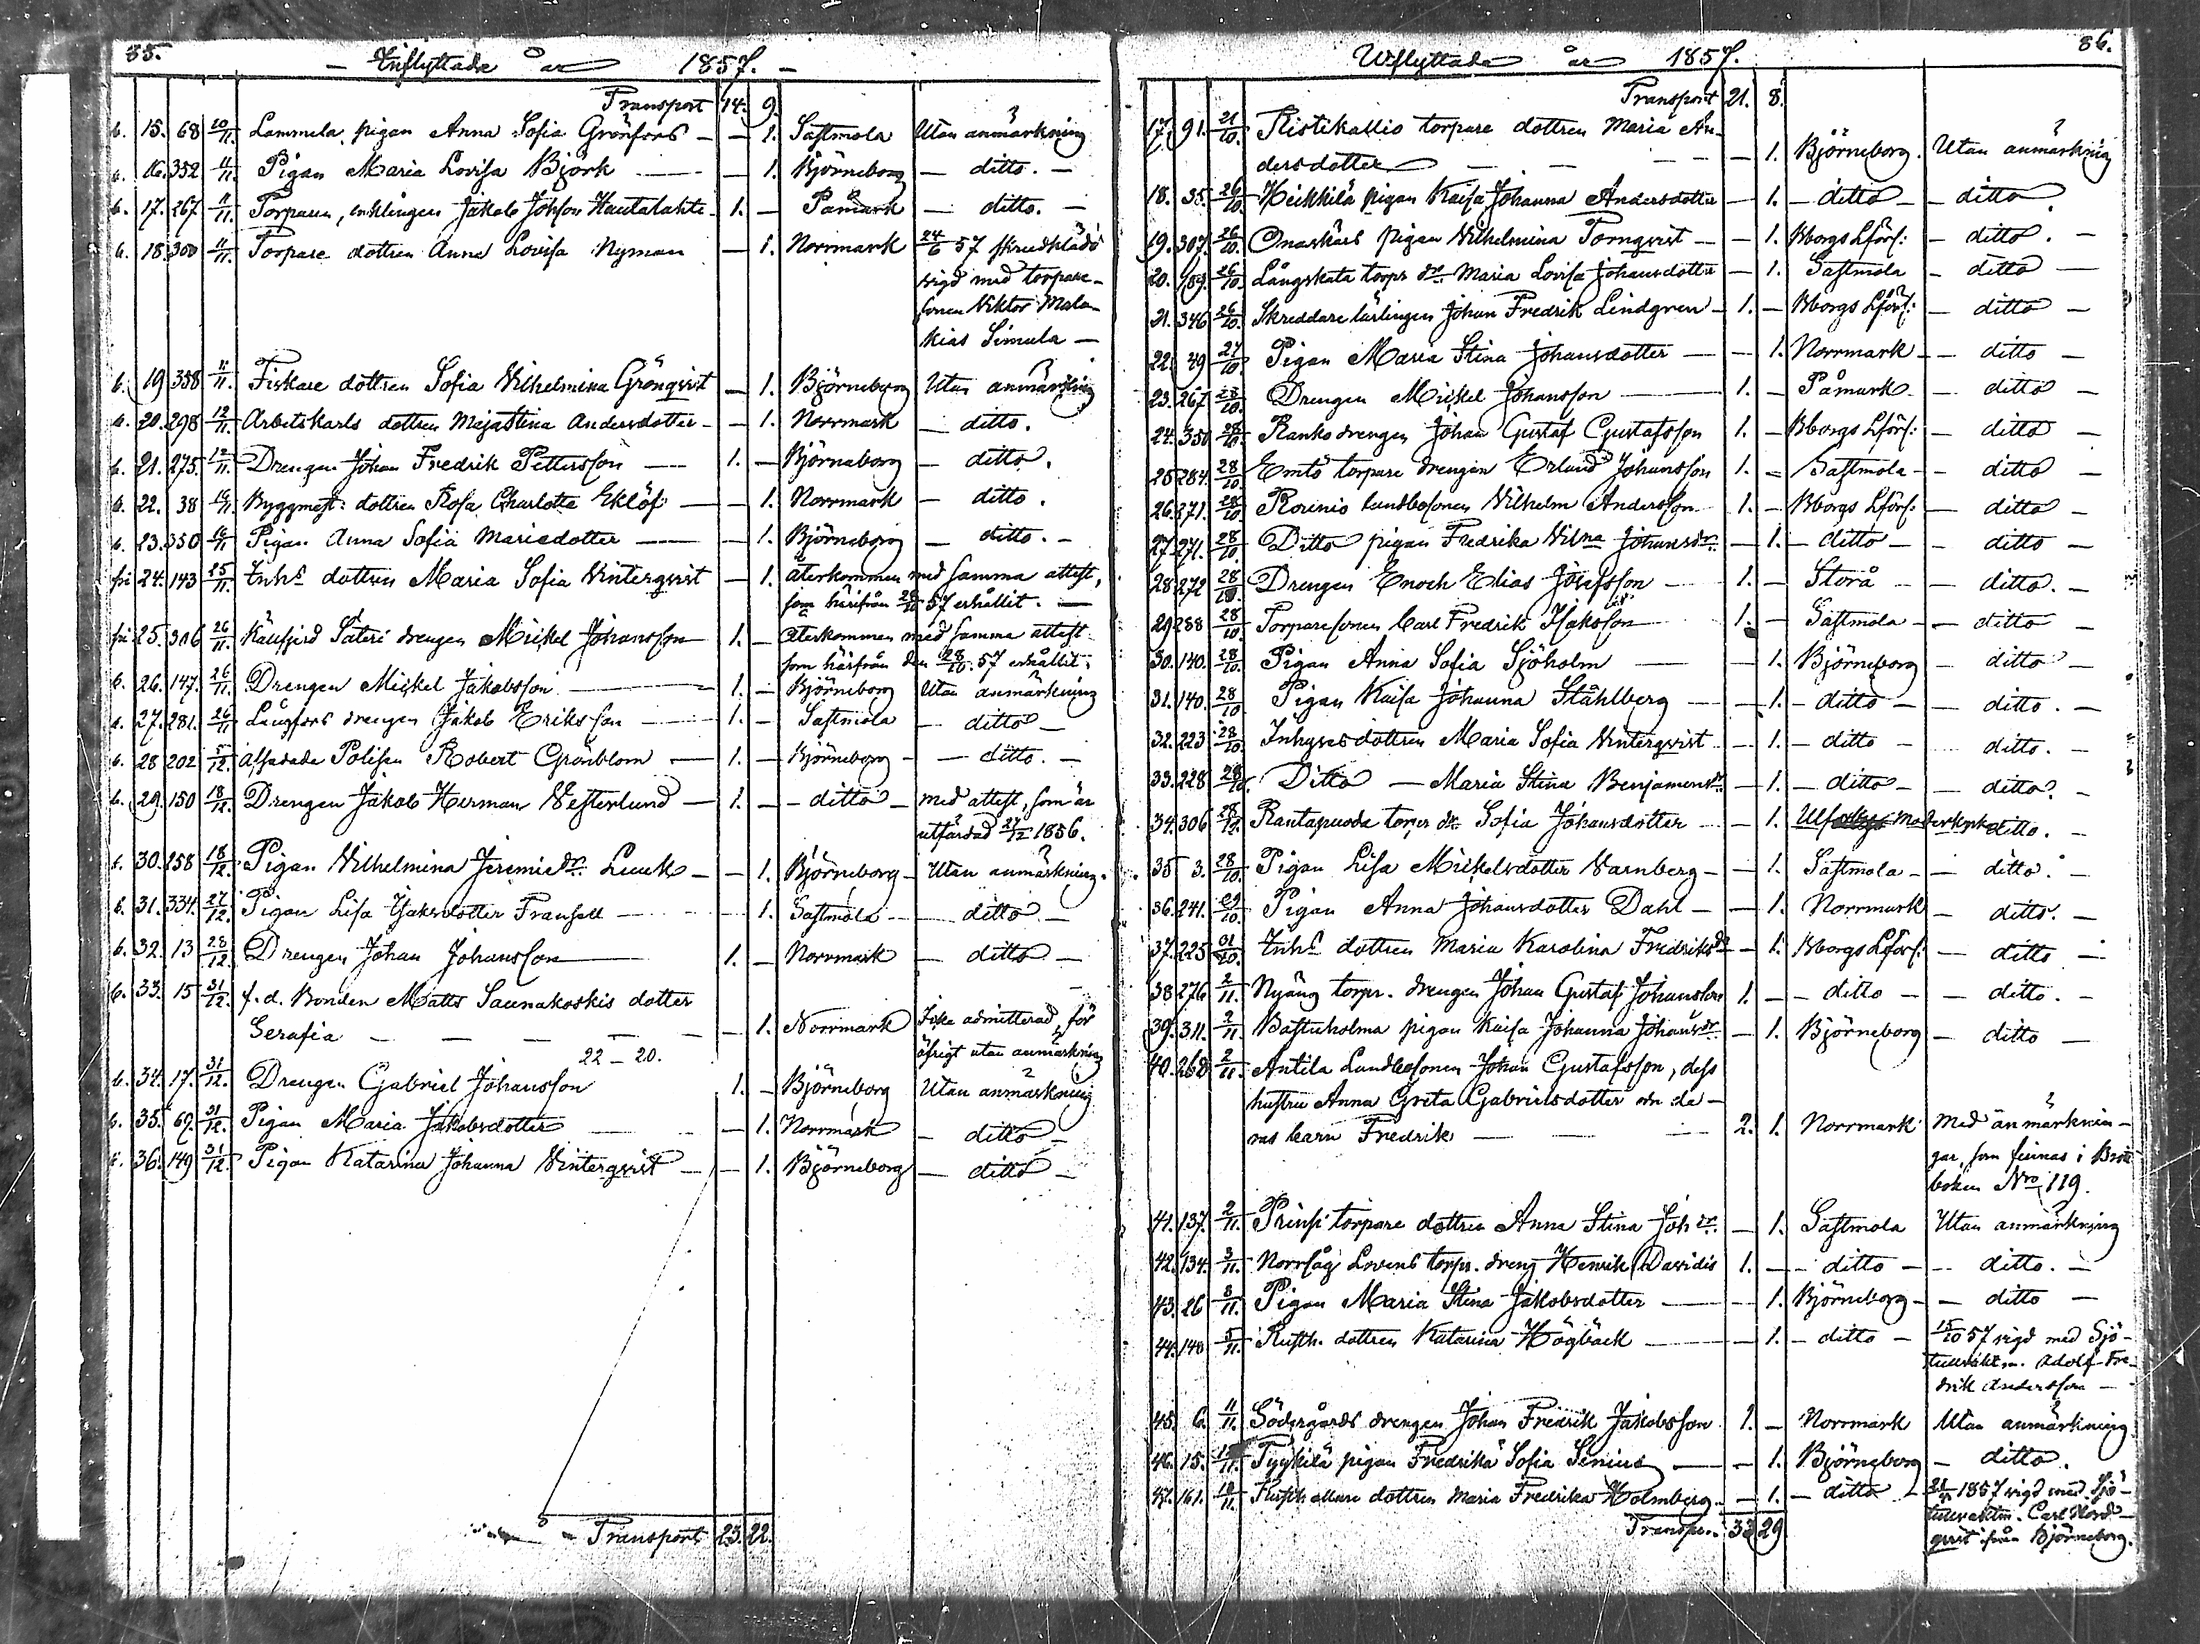 85.
Inflyttade år 1857.
Transport 14. 9.
b. 15. 68 20/11. Lammela pigan Anna Sofia Grönfors — — 1. Sastmola Utan anmärkning
b. 16. 352 11/11. Pigan Maria Lovisa Björk — — 1. Björneborg — ditto. —
b. 17. 267 11/11. Torparen, enklingen Jakob Johsson Hautalahti 1. — Påmark — ditto. —
b. 18. 300 11/11. Torpare dottren Anna Lovisa Nyman — 1. Norrmark 24/6 57 skrudklädd
vigd med torpare-
sonen Viktor Mala-
kias Simula —
b. 19 358 11/11. Fiskare dottren Sofia Vilhelmina Grönqvist — 1. Björneborg Utan anmärkning
b. 20. 298 12/11. Arbetskarls dottren Maja Stina Andersdotter — — 1. Norrmark — ditto.
b. 21. 275. 12/11. Drengen Johan Fredrik Pettersson — 1. — Björneborg — ditto.
b. 22. 38 Byggmest: dottren Rosa Charlotta Eklöf — — 1. Norrmark — ditto.
b. 23. 350 Pigan Anna Sofia Mariedotter — — 1. Björneborg — ditto. —
fri 24. 143 25/11. Inhs dottren Maria Sofia Vinterqvist — 1. Återkommen med samma attest,
som härifrån 28/10 57 erhållit. —
fri 25. 306 26/11. Källfjerd Säteri drengen Mickel Johansson 1. — Återkommen med samma attest
som härifrån den 28/10. 57 erhållit.
b. 26. 147. 26/11. Drengen Mickel Jakobsson — 1. — Björneborg Utan anmärkning
b. 27. 281. 26/11 Långfors drengen Jakob Eriksson — 1. — Sastmola — ditto —
b. 28 202 5/12. Afskedade Polisen Robert Grönblom — 1. — Björneborg — — ditto. —
b. 29. 150 18/12. Drengen Jakob Herman Vesterlund — 1. — — ditto — med attest, som är
utfärdad 27/12 1856.
b. 30. 258 18/12. Pigan Vilhelmina Jeremiedr. Luuk — — 1. Björneborg — Utan anmärkning.
b. 31. 334. 27/12. Pigan Lisa Isaksdotter Fransell — 1. Sastmola — — ditto —
b. 32. 13 28/12. Drengen Johan Johansson — 1. — Norrmark — ditto —
b. 33. 15 31/12. f.d. Bonden Matts Saunakoskis dotter
Serafia — — — — — 1. Norrmark Icke admitterad, för
öfrigt utan anmärkning
22 – 20.
b. 34. 17. 31/12. Drengen Gabriel Johansson 1. — Björneborg Utan anmärkning
b. 35. 69. 31/12. Pigan Maria Jakobsdotter — — 1. Norrmark — ditto —
b. 36. 149 31/12. Pigan Katarina Johanna Vinterqvist — — 1. Björneborg — ditto —
Transport 23. 22.
86.
Utflyttade år 1857.
Transport 21. 8.
17. 91. 21/10. Ristikallio torpare dottren Maria An-
dersdotter — — — — 1. Björneborg. Utan anmärkning
18. 35. 26/10. Heikkilä pigan Kaisa Johanna Andersdotter — 1. — ditto — — ditto.
19. 307. 26/10. Onaskärs pigan Vilhelmina Tornqvist — — 1. Bborgs Lförs: — ditto. —
20. 189. 26/10. Långskata torps dr Maria Lovisa Johansdotter — 1. Sastmola — ditto —
21. 346 26/10. Skreddare lärlingen Johan Fredrik Lindgren — 1. — Bborgs Lförs: — ditto —
22. 49 27/10. Pigan Maria Stina Johansdotter — — 1. Norrmark — — ditto —
23. 267 28/10. Drengen Mickel Johansson — 1. — Påmark — — ditto —
24. 350 28/10. Ranko drengen Johan Gustaf Gustafsson 1. — Bborgs Lförs: — ditto —
25 284. 28/10. torpare drengen Erland Johansson 1. — Sastmola — ditto —
26. 271. 28/10. Rosenio landbosonen Vilhelm Andersson 1. — Bborgs Lförs: — ditto —
27. 271. 28/10. Ditto pigan Fredrika Vilna Johansdr — 1. — ditto — — ditto —
28 272 28/10. Drengen Enoch Elias Josefsson — 1. — Storå — — ditto. —
29 288 28/10. Torparesonen Carl Fredrik Isaksson 1. — Sastmola — — ditto —
30. 140. 28/10. Pigan Anna Sofia Sjöholm — — 1. Björneborg — ditto —
31. 140. 28/10 Pigan Kaisa Johanna Ståhlberg — — 1. — ditto — — ditto. —
32. 223 28/10. Inhyses dottren Maria Sofia Vinterqvist — 1. — ditto — ditto. —
33. 228 28/10. Ditto — Maria Stina Benjaminsdr — 1. — ditto — — ditto. —
34. 306 28/10. Rantapuoda torps dr Sofia Johansdotter — — 1. Ulfsby Moderkyrk ditto. —
35 3. 28/10. Pigan Lisa Mickelsdotter Varnberg — — 1. Sastmola — — ditto. —
36. 241. 29/10. Pigan Anna Johansdotter Dahl — — 1. Norrmark — ditto. —
37. 225 31/10. Inhs dottren Maria Karolina Fredriksdr — 1. Bborgs Lförs: — ditto —
38 276 2/11. Nyäng torpr. drengen Johan Gustaf Johansson 1. — — ditto — — ditto. —
39. 311. 2/11. Bastuholma pigan Kaisa Johanna Johansdr — 1. Björneborg — ditto —
40. 268 2/11. Antila Landbosonen Johan Gustafsson, dess
hustru Anna Greta Gabrielsdotter och de-
ras barn Fredrik — — — 2. 1. Norrmark Med anmärknin-
gar, som finnas i Brott-
boken Nro 119.
41. 137. 2/11. Prinsi torpare dottren Anna Stina Joh dr. — 1. Sastmola Utan anmärkning
42. 134. 3/11. Norrsåg Lovens torpr. dreng Henrik Davidis 1. — — ditto — — ditto. —
43. 26 3/11. Pigan Maria Stina Jakobsdotter — — 1. Björneborg — — ditto —
44. 140 5/11. Rusth. dottren Katarina Högbäck — — 1. — ditto — 15/10 57 vigd med Sjö-
tullvaktm. Adolf Fre-
drik Andersson —
45. 6. 11/11. Södergårds drengen Johan Fredrik Jakobsson 1. — Norrmark Utan anmärkning
46. 15. Tyykilä pigan Fredrika Sofia Senius — — 1. Björneborg — ditto.
47. 161. Rusthållare dottren Maria Fredrika Holmberg — 1. — ditto — 1857 vigd med Sjö-
tullvaktm. Carl Nord-
qvist ifrån Björneborg.
Transpor. 33 29